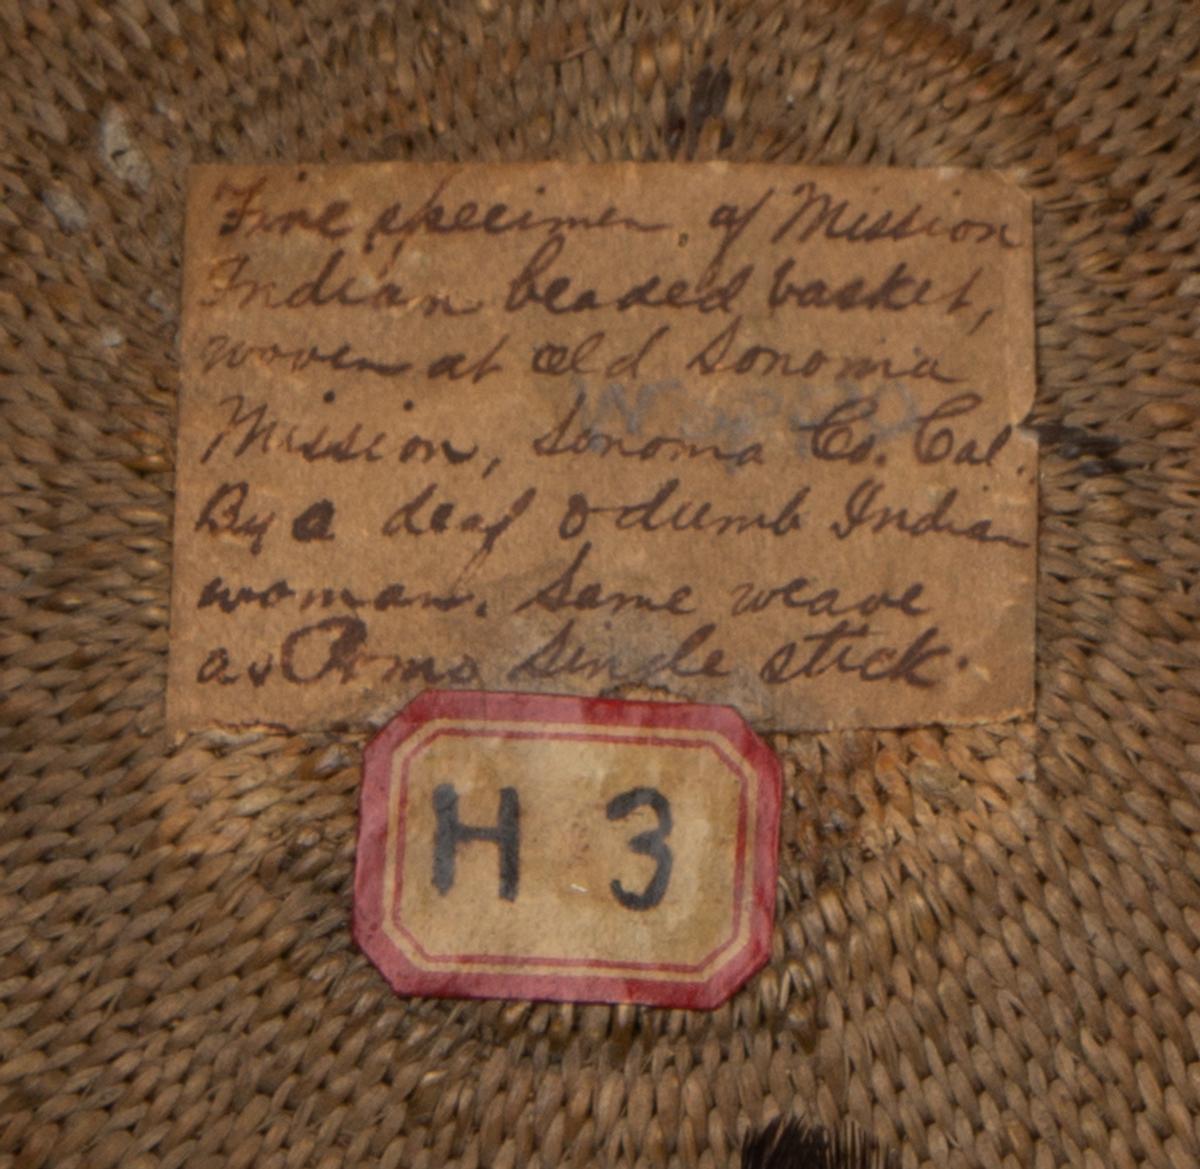 Fine specimen of Mission
Indian beaded basket,
woven at old Sonoma
Mission, Sonoma Co. Cal.
By a deaf & dumb Indian
woman. Same weave
as Pomo Single stick.
H 3